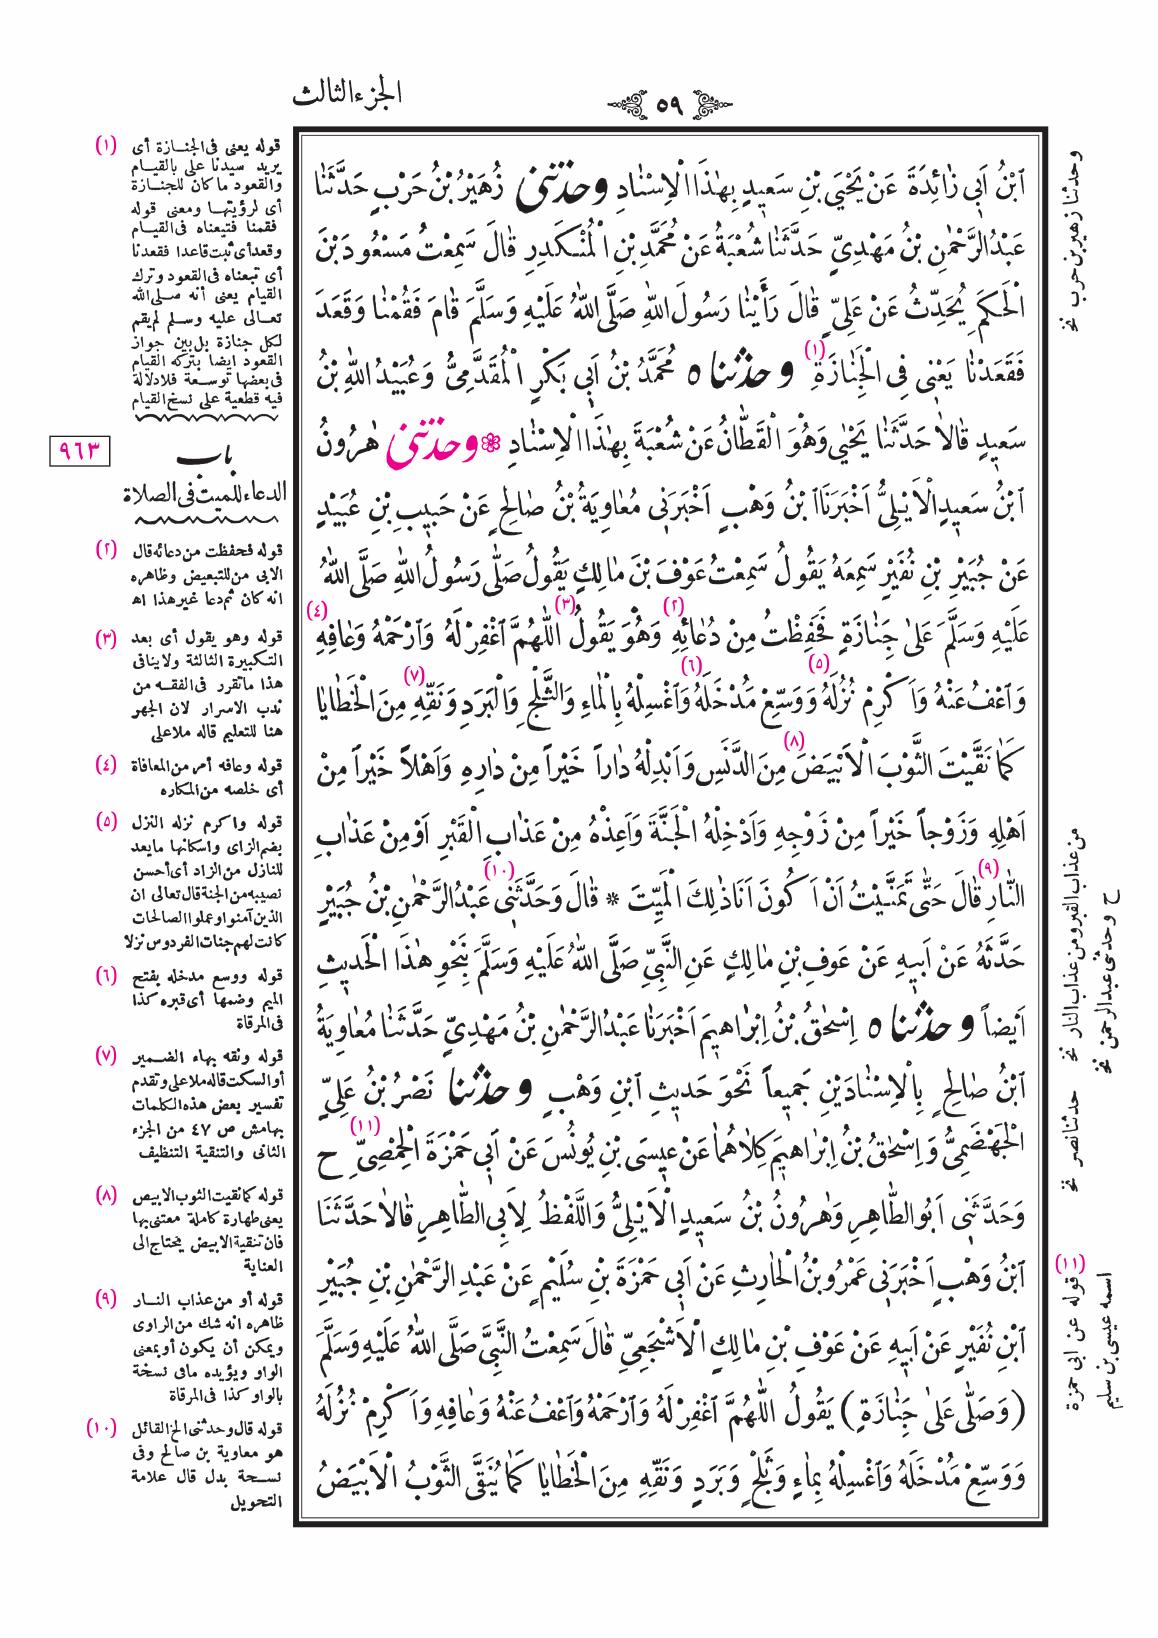 الجزء الثالث
٥٩
اَبْنُ اَبِى زٰائِدَةَ عَنْ يَحْيَى بْنِ سَعِيدٍ بِهٰذَا الْاِسْنٰادِ وحدثنى زُهَيْرُ بْنُ حَرْبٍ حَدَّثَنٰا
عَبْدُ الرَّحْمٰنِ بْنُ مَهْدِىٍّ حَدَّثَنٰا شُعْبَةُ عَنْ مُحَمَّدِ بْنِ الْمُنْكَدِرِ قٰالَ سَمِعْتُ مَسْعُودَ بْنَ
الْحَكَمِ يُحَدِّثُ عَنْ عَلِىٍّ قٰالَ رَأَيْنٰا رَسُولَ اللهِ صَلَّى اللهُ عَلَيْهِ وَسَلَّمَ قٰامَ فَقُمْنٰا وَقَعَدَ
فَقَعَدْنٰا يَعْنِى فِى الْجَنٰازَةِ (١) وحدثناه مُحَمَّدُ بْنُ اَبِى بَكْرٍ الْمُقَدَّمِىُّ وَعُبَيْدُ اللهِ بْنُ
سَعِيدٍ قٰالاٰ حَدَّثَنٰا يَحْيٰى وَهُوَ الْقَطّٰانُ عَنْ شُعْبَةَ بِهٰذَا الْاِسْنٰادِ ❁ وحدثنى هٰرُونُ
اَبْنُ سَعِيدٍ الْاَيْلِىُّ اَخْبَرَنَا ابْنُ وَهْبٍ اَخْبَرَنِى مُعٰاوِيَةُ بْنُ صٰالِحٍ عَنْ حَبِيبِ بْنِ عُبَيْدٍ
عَنْ جُبَيْرِ بْنِ نُفَيْرٍ سَمِعَهُ يَقُولُ سَمِعْتُ عَوْفَ بْنَ مٰالِكٍ يَقُولُ صَلّٰى رَسُولُ اللهِ صَلَّى اللهُ
عَلَيْهِ وَسَلَّمَ عَلىٰ جَنٰازَةٍ فَحَفِظْتُ مِنْ دُعٰائِهِ (٢) وَهُوَ يَقُولُ (٣) اَللّٰهُمَّ اغْفِرْ لَهُ وَارْحَمْهُ وَعٰافِهِ (٤)
وَاعْفُ عَنْهُ وَاَكْرِمْ نُزُلَهُ (٥) وَوَسِّعْ مُدْخَلَهُ (٦) وَاغْسِلْهُ بِالْمٰاءِ وَالثَّلْجِ وَالْبَرَدِ وَنَقِّهِ (٧) مِنَ الْخَطٰايٰا
كَمٰا نَقَّيْتَ الثَّوْبَ الْاَبْيَضَ (٨) مِنَ الدَّنَسِ وَاَبْدِلْهُ دٰاراً خَيْراً مِنْ دٰارِهِ وَاَهْلاً خَيْراً مِنْ
اَهْلِهِ وَزَوْجاً خَيْراً مِنْ زَوْجِهِ وَاَدْخِلْهُ الْجَنَّةَ وَاَعِذْهُ مِنْ عَذٰابِ الْقَبْرِ اَوْ مِنْ عَذٰابِ
النّٰارِ (٩) قٰالَ حَتّٰى تَمَنَّيْتُ اَنْ اَكُونَ اَنَا ذٰلِكَ الْمَيِّتَ * قٰالَ وَحَدَّثَنِى (١٠) عَبْدُ الرَّحْمٰنِ بْنُ جُبَيْرٍ
حَدَّثَهُ عَنْ اَبِيهِ عَنْ عَوْفِ بْنِ مٰالِكٍ عَنِ النَّبِىِّ صَلَّى اللهُ عَلَيْهِ وَسَلَّمَ بِنَحْوِ هٰذَا الْحَدِيثِ
اَيْضاً وحدثناه اِسْحٰقُ بْنُ اِبْرٰاهِيمَ اَخْبَرَنٰا عَبْدُ الرَّحْمٰنِ بْنُ مَهْدِىٍّ حَدَّثَنٰا مُعٰاوِيَةُ
اَبْنُ صٰالِحٍ بِالْاِسْنٰادَيْنِ جَمِيعاً نَحْوَ حَدِيثِ ابْنِ وَهْبٍ وحدثنا نَصْرُ بْنُ عَلِىٍّ
الْجَهْضَمِىُّ وَاِسْحٰقُ بْنُ اِبْرٰاهِيمَ كِلاٰهُمٰا عَنْ عِيسَى بْنِ يُونُسَ عَنْ اَبِى حَمْزَةَ الْحِمْصِىِّ (١١) ح
وَحَدَّثَنِى اَبُو الطّٰاهِرِ وَهٰرُونُ بْنُ سَعِيدٍ الْاَيْلِىُّ وَاللَّفْظُ لِاَبِى الطّٰاهِرِ قٰالاٰ حَدَّثَنَا
ابْنُ وَهْبٍ اَخْبَرَنِى عَمْرُو بْنُ الْحٰارِثِ عَنْ اَبِى حَمْزَةَ بْنِ سُلَيْمٍ عَنْ عَبْدِ الرَّحْمٰنِ بْنِ جُبَيْرِ
ابْنِ نُفَيْرٍ عَنْ اَبِيهِ عَنْ عَوْفِ بْنِ مٰالِكٍ الْاَشْجَعِىِّ قٰالَ سَمِعْتُ النَّبِىَّ صَلَّى اللهُ عَلَيْهِ وَسَلَّمَ
(وَصَلّٰى عَلىٰ جَنٰازَةٍ) يَقُولُ اَللّٰهُمَّ اغْفِرْ لَهُ وَارْحَمْهُ وَاعْفُ عَنْهُ وَعٰافِهِ وَاَكْرِمْ نُزُلَهُ
وَوَسِّعْ مُدْخَلَهُ وَاغْسِلْهُ بِمٰاءٍ وَثَلْجٍ وَبَرَدٍ وَنَقِّهِ مِنَ الْخَطٰايٰا كَمٰا يُنَقَّى الثَّوْبُ الْاَبْيَضُ
وحدثنا زهير بن حرب نخ
من عذاب القبر ومن عذاب النار نخ
ح وحدثنى عبدالرحمن نخ
حدثنا نصر نخ
(١١) قوله عن ابى حمزة
اسمه عيسى بن سليم
(١) قوله يعنى فى الجنازة أى
يريد سيدنا على بالقيام
والقعود ما كان للجنازة
أى لرؤيتها ومعنى قوله
فقمنا فتبعناه فى القيام
وقعد أى ثبت قاعدا فقعدنا
أى تبعناه فى القعود وترك
القيام يعنى أنه صلى الله
تعالى عليه وسلم لم يقم
لكل جنازة بل بين جواز
القعود ايضا بتركه القيام
فى بعضها توسعة فلا دلالة
فيه قطعية على نسخ القيام
٩٦٣
باب
الدعاء للميت فى الصلاة
(٢) قوله فحفظت من دعائه قال
الابى من للتبعيض وظاهره
انه كان ثم دعا غير هذا اه
(٣) قوله وهو يقول أى بعد
التكبيرة الثالثة ولا ينافى
هذا ما تقرر فى الفقه من
ندب الاسرار لان الجهر
هنا للتعليم قاله ملا على
(٤) قوله وعافه أمر من المعافاة
أى خلصه من المكاره
(٥) قوله واكرم نزله النزل
بضم الزاى واسكانها ما يعد
للنازل من الزاد أى أحسن
نصيبه من الجنة قال تعالى ان
الذين آمنوا وعملوا الصالحات
كانت لهم جنات الفردوس نزلا
(٦) قوله ووسع مدخله بفتح
الميم وضمها أى قبره كذا
فى المرقاة
(٧) قوله ونقه بهاء الضمير
أو السكت قاله ملا على وتقدم
تفسير بعض هذه الكلمات
بهامش ص ٤٧ من الجزء
الثانى والتنقية التنظيف
(٨) قوله كما نقيت الثوب الابيض
يعنى طهارة كاملة معتنى بها
فان تنقية الابيض يحتاج الى
العناية
(٩) قوله أو من عذاب النار
ظاهره انه شك من الراوى
ويمكن أن يكون أو بمعنى
الواو ويؤيده ما فى نسخة
بالواو كذا فى المرقاة
(١٠) قوله قال وحدثنى الخ القائل
هو معاوية بن صالح وفى
نسخة بدل قال علامة
التحويل